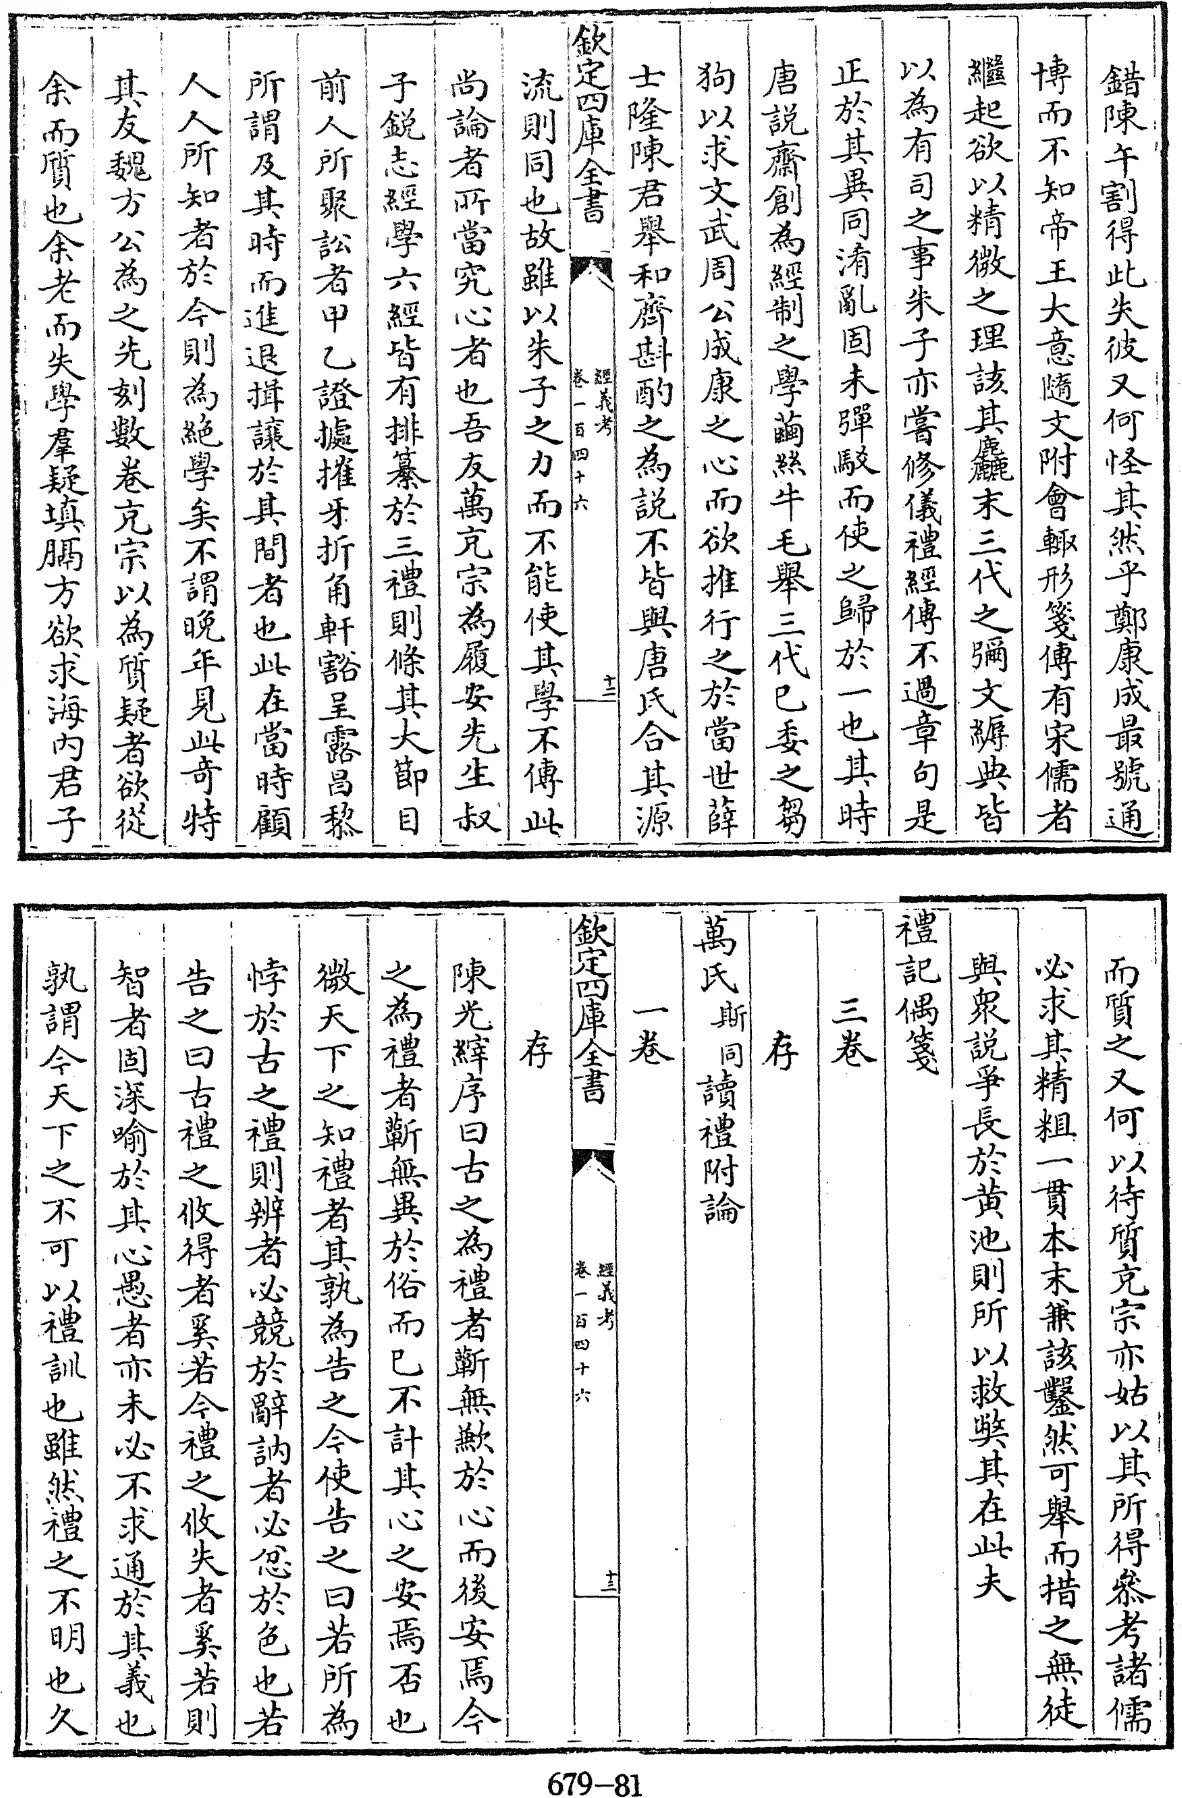 錯陳午割得此失彼又何怪其然乎鄭康成最號通
博而不知帝王大意隨文附會輙形箋傳有宋儒者
繼起欲以精微之理該其麤末三代之彌文縟典皆
以為有司之事朱子亦嘗修儀禮經傳不過章句是
正於其異同淆亂固未彈駁而使之歸於一也其時
唐説齋創為經制之學繭絲牛毛舉三代已委之芻
狗以求文武周公成康之心而欲推行之於當世薛
士隆陳君舉和齊斟酌之為説不皆與唐氏合其源
欽定四庫全書
經義考
卷一百四十六
十二
流則同也故雖以朱子之力而不能使其學不傳此
尚論者所當究心者也吾友萬充宗為履安先生叔
子鋭志經學六經皆有排纂於三禮則條其大節目
前人所聚訟者甲乙證據摧牙折角軒豁呈露昌黎
所謂及其時而進退揖讓於其間者也此在當時顧
人人所知者於今則為絶學矣不謂晚年見此奇特
其友魏方公為之先刻數卷充宗以為質疑者欲從
余而質也余老而失學羣疑填膈方欲求海内君子
而質之又何以待質充宗亦姑以其所得叅考諸儒
必求其精粗一貫本末兼該鑿然可舉而措之無徒
與衆説爭長於黄池則所以救獘其在此夫
禮記偶箋
三卷
存
萬氏斯同讀禮附論
一卷
欽定四庫全書
經義考
卷一百四十六
十三
存
陳光縡序曰古之為禮者蘄無歉於心而後安焉今
之為禮者蘄無異於俗而已不計其心之安焉否也
微天下之知禮者其孰為告之今使告之曰若所為
悖於古之禮則辨者必競於辭訥者必忿於色也若
告之曰古禮之攸得者奚若今禮之攸失者奚若則
智者固深喻於其心愚者亦未必不求通於其義也
孰謂今天下之不可以禮訓也雖然禮之不明也久
679-81